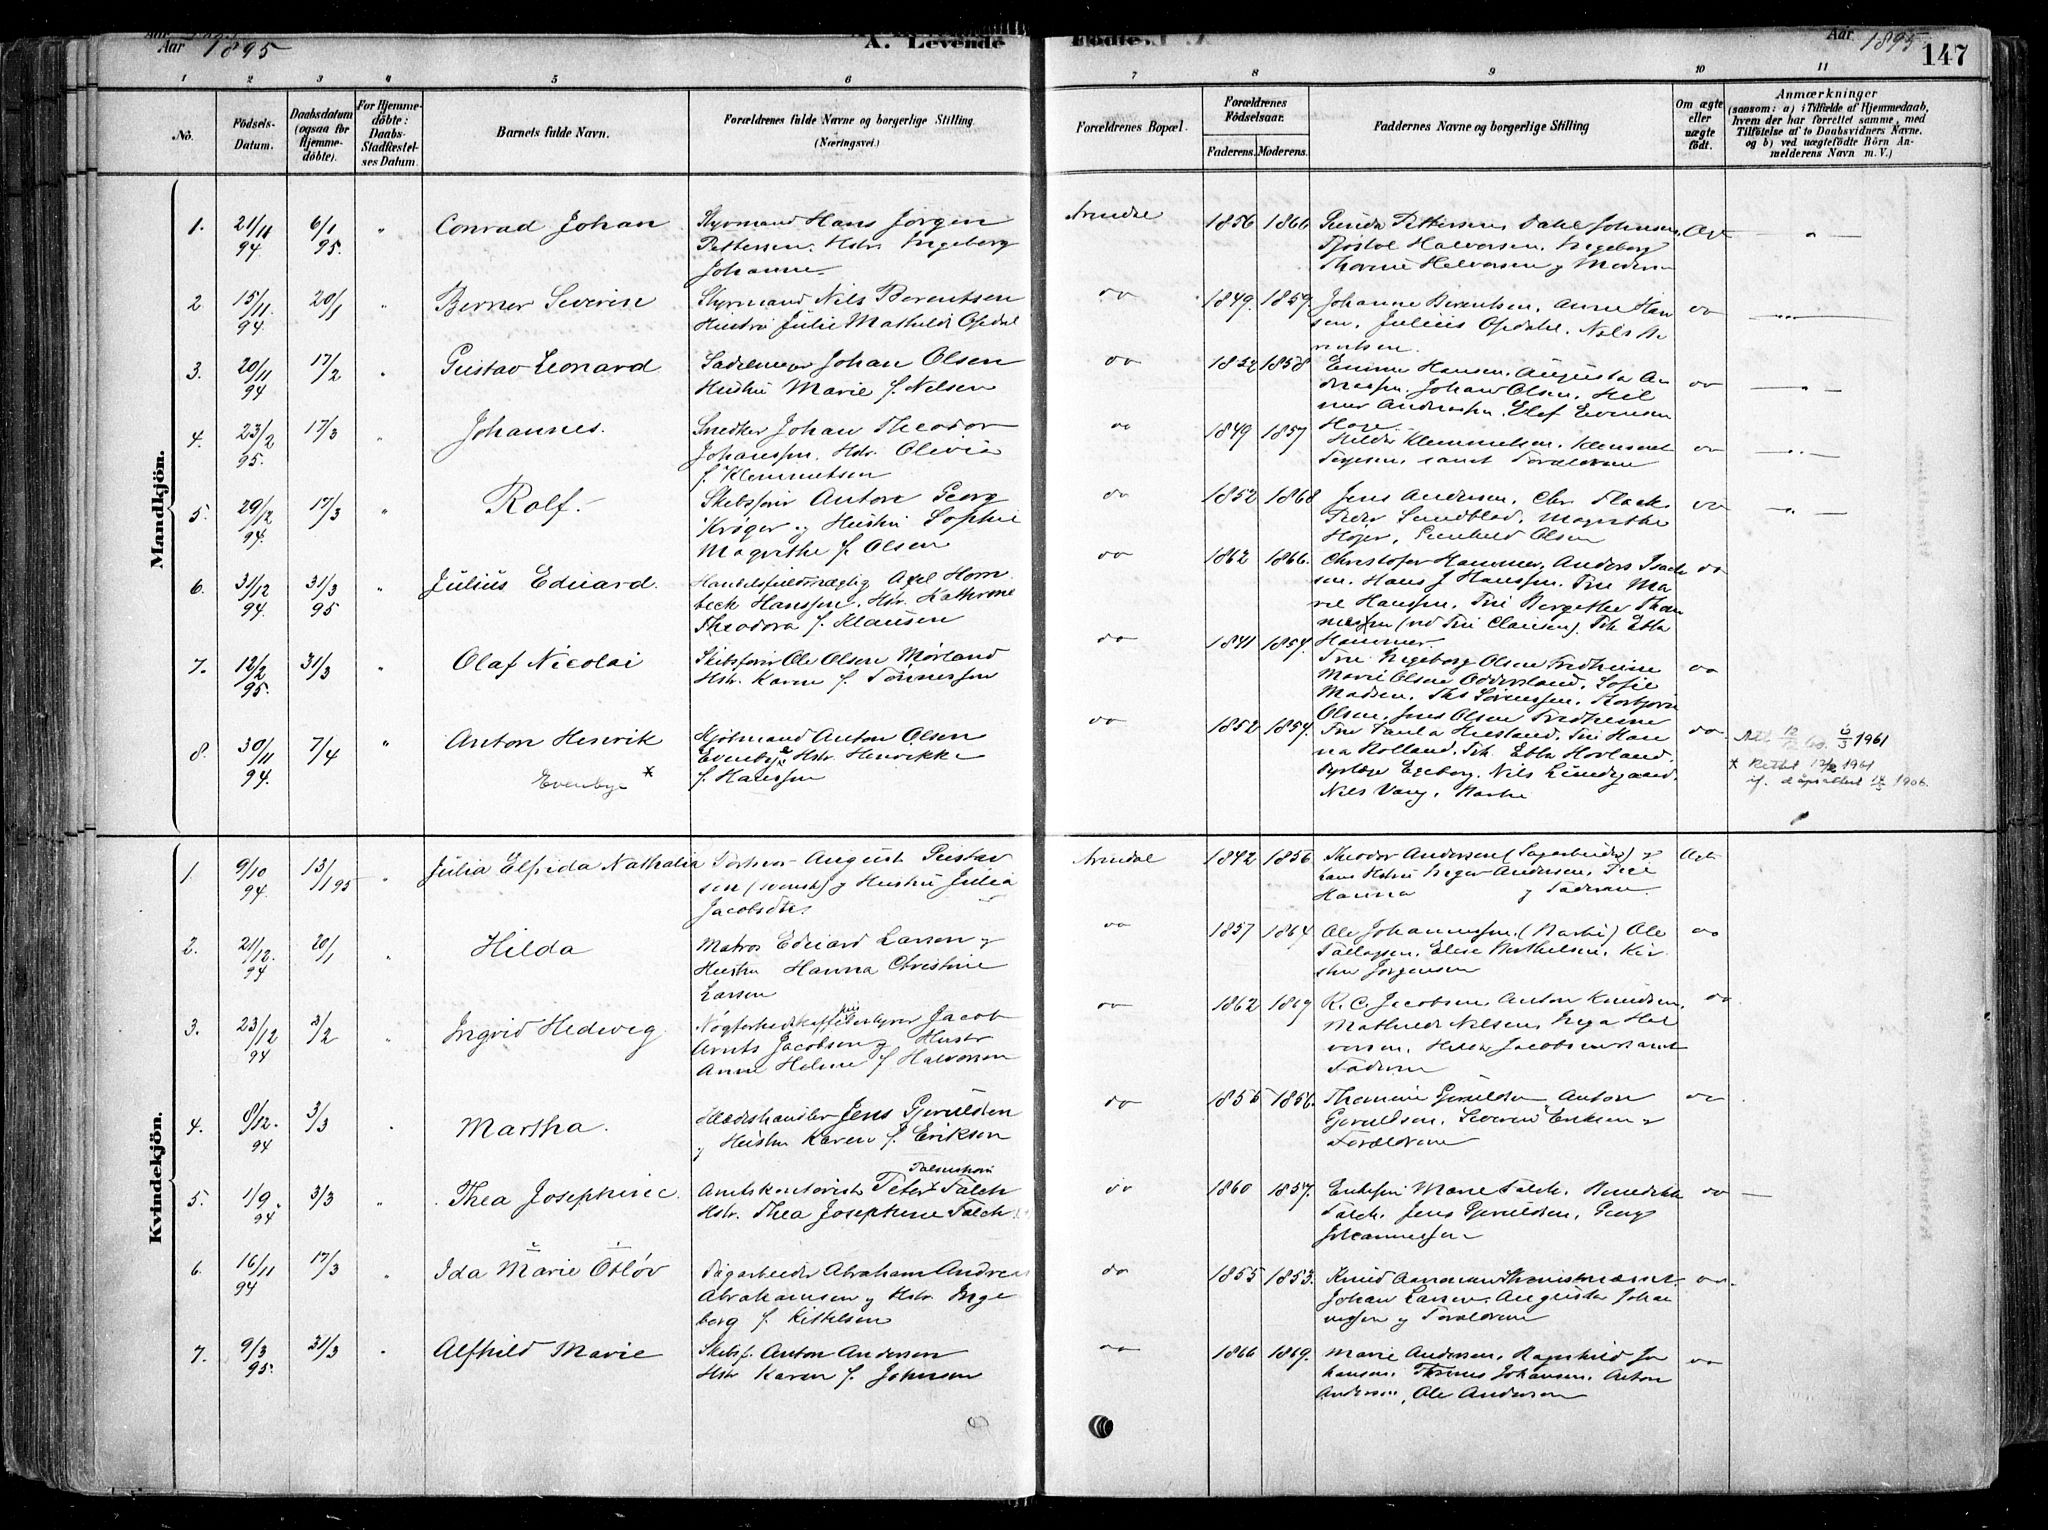 Aar 1895
A. Levende
Fødte.
Aar 1895
147
1 2 3 4 5 6 7 8 9 10 11
No.
Fødsels-Datum.
Daabsdatum (ogsaa for Hjemmedøbte).
For Hjemmedøbte: Daabs-Stadfæstelses Datum.
Barnets fulde Navn.
Forældrenes fulde Navne og borgerlige Stilling.
(Næringsvei.)
Forældrenes Bopæl.
Forældrenes Fødselsaar.
Faderens. Moderens.
Faddernes Navne og borgerlige Stilling
Om ægte eller uægte født.
Anmærkninger
(saasom: a) i Tilfælde af Hjemmedaab, hvem der har forrettet samme, med Tilføielse af to Daabsvidners Navne. og b) ved uægtefødte Børn Anmelderens Navn m. V.)
Mandkjön.
1. 21/11 94 6/1 95. " Conrad Johan Styrmand Hans Jörgen
Pettersen. Hstr. Ingeborg
Johanne
Arendal 1856 1866 Pettersen, Johnsen, Ægt
Halvorsen. Ingeborg
Halvorsen
2 15/11 94. 20/1 " Berner Severin Styrmand Nils Berentsen
Hustru Julie Mathilde Opdal
do 1849. 1859. Johanne Berentsen, Anne Han
sen, Julius Opdahl. Nils Be
rentsen. do
3. 20/11 94 17/2 " Gustav Leonard Sadelmager Johan Olsen
Hustru Marie f. Nelsen
do 1852 1858 Hansen. Augusta An
dreassen. Johan Olsen. Hil
mar Andreassen. Olaf Evensen do
4. 23/2 95. 17/3 " Johannes. Snedker Johan Theodor
Johanssen. Hstr. Olivia
f. Klemmetsen
do 1849 1857 Hilda Klemmetsen. Klemmet
samt Forældrene do
5. 29/12 94. 17/3 " Rolf. Skibsfører Anton Georg
Krøger og Hustru Sophie
Magrethe f. Olsen
do 1852 1868 Jens Andersen. Chr. Flack
Peder Sundblad. Magrethe
Højer, Gunhild Olsen do
6. 31/12 94. 31/3 95 " Julius Eduard. Handelsfuldmægtig Axel Horn
beck Hanssen. Hstr. Kathrine
Theodora f. Klausen
do 1862 1866. Christofer Hammer, Anders Isach
sen. Hans J Hanssen. Fru Ma
rie Hanssen, Fru Bergethe Thom
messen (ved Fru Clausen). Frk Ebba
Hammer. do
7. 12/2 95. 31/3 " Olaf Nicolai Skibsfører Ole Olsen Mørland
Hstr. Karen f. Tønnessen
do 1841 1854. Fru Ingeborg Olsen Fredheim
Marie Olsen Oddersland. Sofie
Madsen. Ths Sørenssen. Thorbjørn
Olsen, Jens Olsen Fredheim do
8. 30/11 94. 7/4 " Anton Henrik
Evenbye *
Kjøbmand Anton Olsen
Evenbye Hstr. Henrikke
f. Hanssen
do 1852 1854. Fru Paula Fru Han
na Holland. Frk. Ebba Hovland.
Egeberg. Nils Lundegaard.
Nils Vang. do.
Att 12/12 60. 6/3 1961
* Rettet 12/2 1961
if. dåpsattest 14/5 1906.
Kvindekjön.
1 9/10 94. 13/1 95 " Julia Elfrida Nathalia August Gustav
sen (svensk) og Hustru Julia
Jacobsdtr.
Arendal 1842 1856. Theodor Andersen (Sagarbeider) og
hans Hstru Inger Andersen,
Hanna og Faderen Ægt
2. 21/12 94 20/1 " Hilda Matros Eduard Larsen og
Hustru Hanna Christine
Larsen
do 1857 1864 Ole Johannessen, (Barbu) Ole
Tallagsen, Elise Berthelsen, Kir
sten Jørgensen do
3. 23/12 94 3/2 " Ingrid Hedevig Jacob
Arnts Jacobsen og Hustr
Anne Helene f Halvorsen
do 1862 1869 R. C. Jacobsen, Anton Knudsen,
Mathilde Nilsen, Inga Hal
vorsen, Hilda Jacobsen samt
Faderen do
4. 8/12 94 3/3 " Martha. Jens Gjeruldsen
og Hustru Karen f. Eriksen
do 1855 1856. Gjeruldsen Anton
Gjeruldsen, Severin Eriksen og
Forældrene do
5. 1/9 94 3/3 " Thea Josephine Amtskontorist Peter Falch
Hstr. Thea Josephine Falch
do 1860 1857. Marie Falch. Benedikte
Falch, Jens Gjeruldsen, Georg
Johannessen do
6. 16/11 94 17/3 " Ida Marie Otlöv Dagarbeider Abraham Andreas
Abrahamsen og Hstr Inge
borg f. Kittelsen
do 1855 1853. Knud
Johan Larsen, Augusta Johan
nessen og Forældrene do
7. 9/3 95. 31/3 " Alfhild Marie Skibsf. Anton Andersen
Hstr Karen f. Johnsen
do 1866 1869. Marie Andersen, Ragnhild Jo
hansen, Thomas Johansen. Anton
Andersen, Ole Andersen do